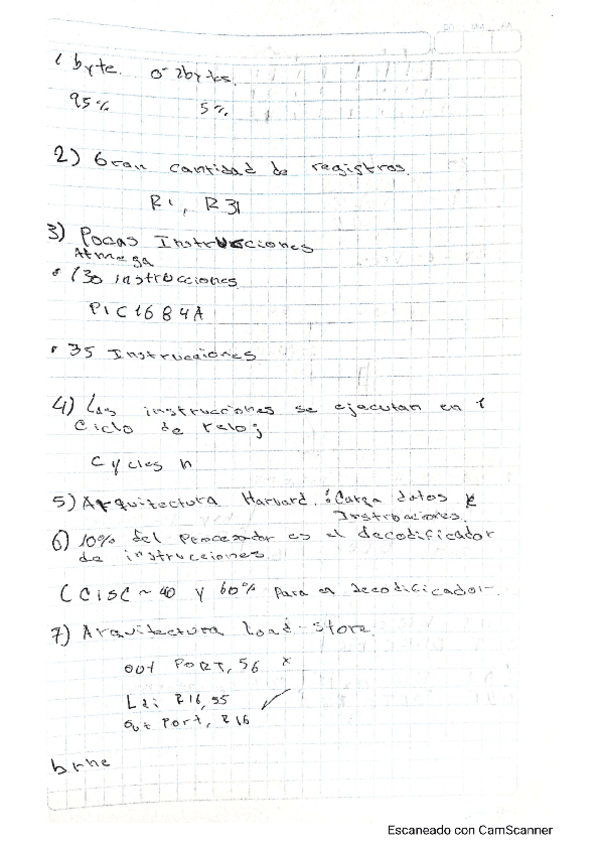 1 byte. o 2bytes.
95% 5%
2) Gran cantidad de registros.
R1, R31
3) Pocas Instrucciones
Atmega
• 130 instrucciones
PIC1684A
• 35 Instrucciones
4) Las instrucciones se ejecutan en 1
Ciclo de reloj
Cycles n
5) Arquitectura Harvard. : Carga datos e
Instrucciones.
6) 10% del Procesador es el decodificador
de instrucciones
(CISC ~ 40 y 60% para el decodificador.
7) Arquitectura load-store.
out PORT, 56 x
Ldi R16, 55 ✓
out Port, R16
brne
Escaneado con CamScanner